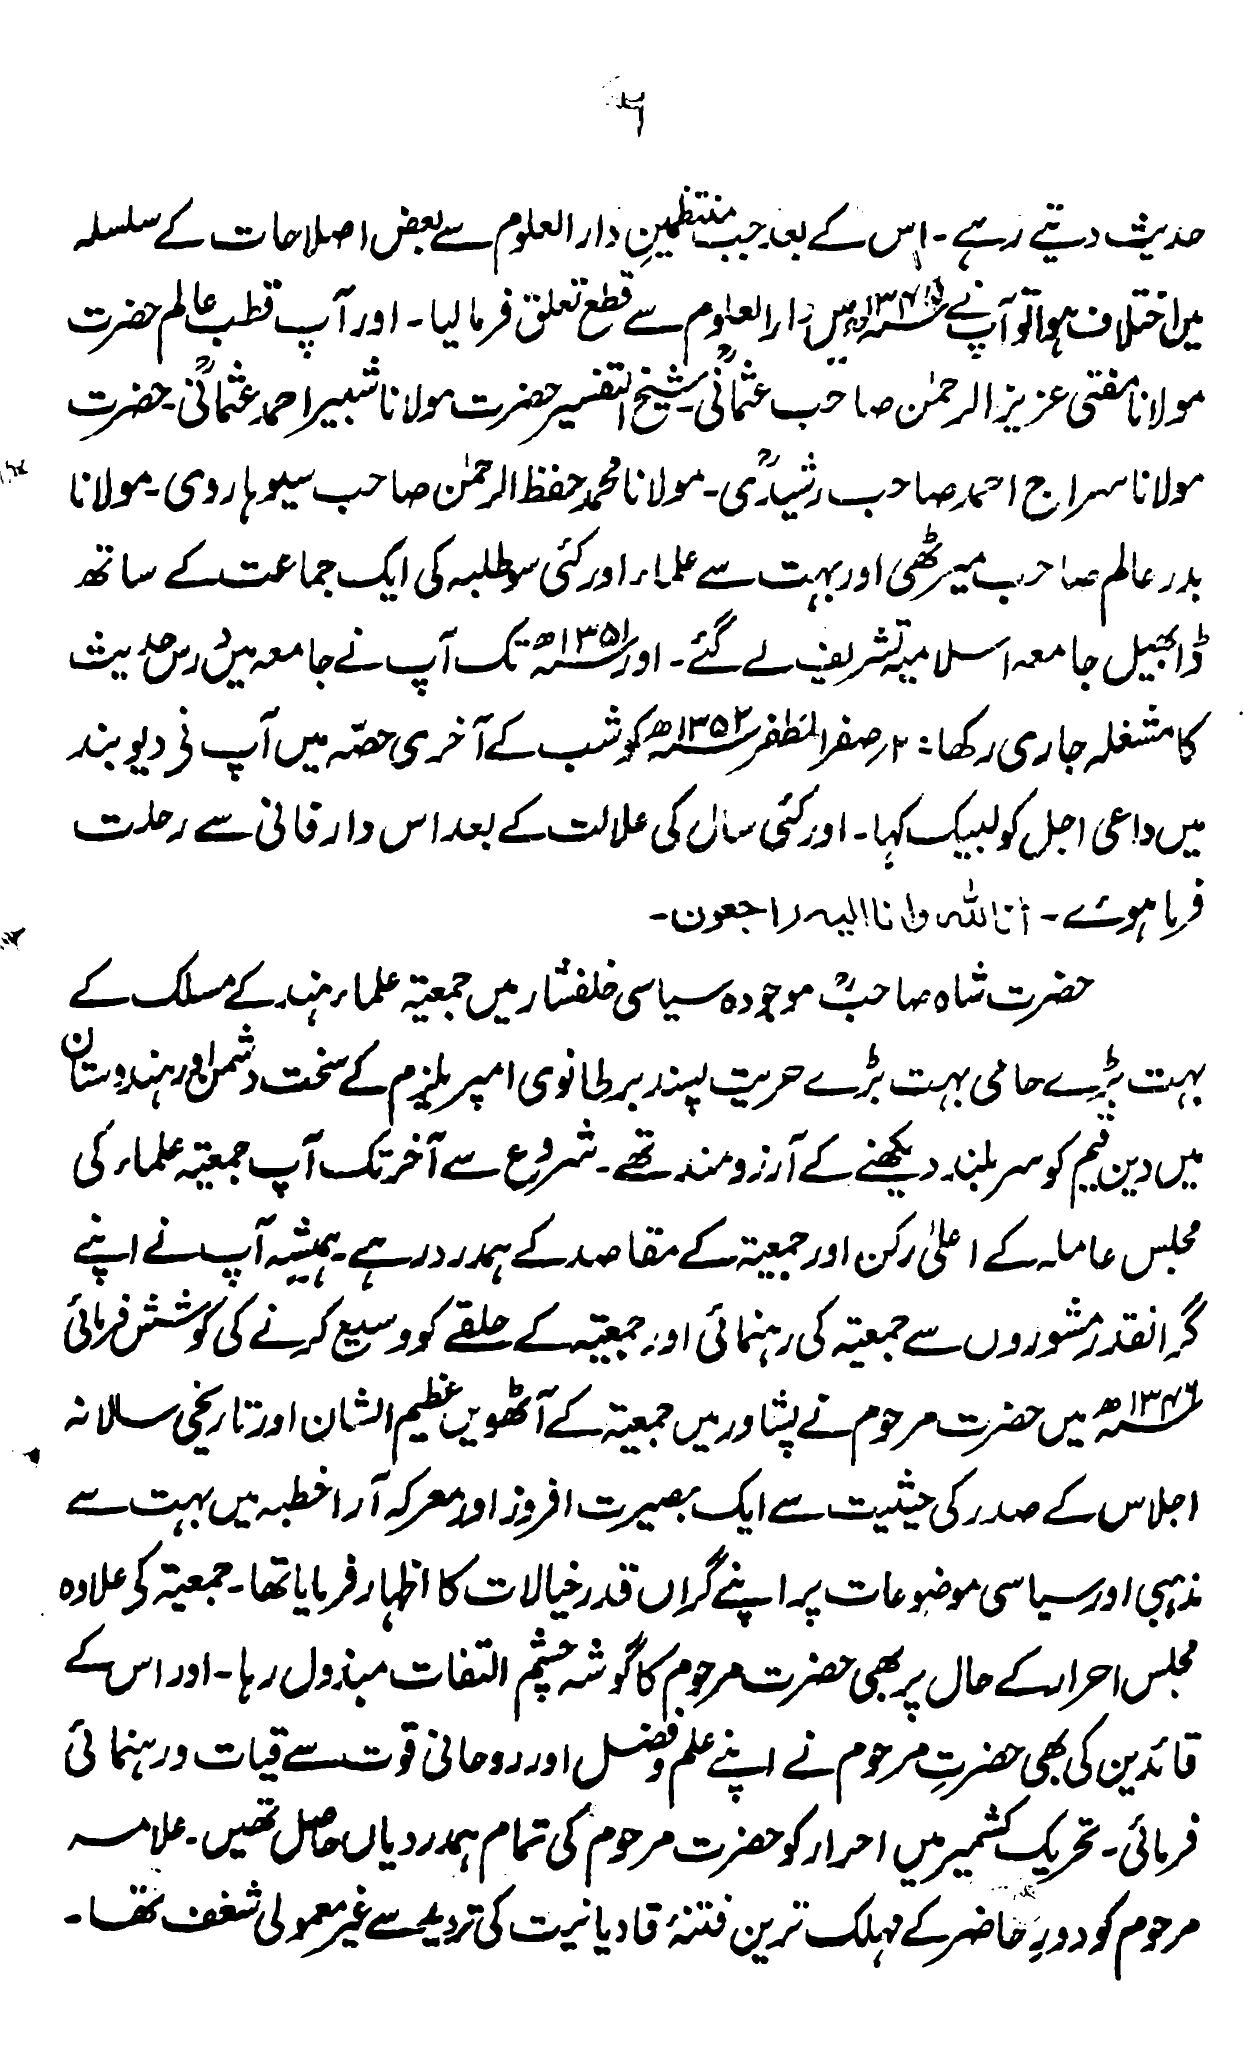 ۶
حدیث دیتے رہے۔ اس کے بعد جب منتظمینِ دار العلوم سے بعض اصلاحات کے سلسلہ
میں اختلاف ہوا تو آپ نے میں دار العلوم سے قطع تعلق فرما لیا۔ اور آپ قطب عالم حضرت
مولانا مفتی عزیز الرحمٰن صاحب عثمانیؒ۔ شیخ التفسیر حضرت مولانا شبیر احمد عثمانیؒ۔ حضرت
مولانا سراج احمد صاحب رشیدیؒ۔ مولانا محمد حفظ الرحمٰن صاحب سیوہاروی۔ مولانا
بدر عالم صاحب میرٹھی اور بہت سے علماء اور کئی سو طلبہ کی ایک جماعت کے ساتھ
ڈابھیل جامعہ اسلامیہ تشریف لے گئے۔ اور ۱۳۵۱ھ تک آپ نے جامعہ میں درس حدیث
کا مشغلہ جاری رکھا: ۲ر صفر المظفر ۱۳۵۲ھ کو شب کے آخری حصّہ میں آپ نی دیوبند
میں داعی اجل کو لبیک کہا۔ اور کئی سال کی علالت کے بعد اس دار فانی سے رحلت
فرما ہوئے۔ انا للہ وانا الیہ راجعون۔
حضرت شاہ صاحبؒ موجودہ سیاسی خلفشار میں جمعیۃ علماء ہند کے مسلک کے
بہت بڑے حامی بہت بڑے حریت پسند برطانوی امپریلزم کے سخت دشمن اور ہندوستان
میں دین قیم کو سر بلند دیکھنے کے آرزو مند تھے۔ شروع سے آخر تک آپ جمعیۃ علماء کی
مجلس عاملہ کے اعلیٰ رکن اور جمعیۃ کے مقاصد کے ہمدرد رہے۔ ہمیشہ آپ نے اپنے
گرانقدر مشوروں سے جمعیۃ کی رہنمائی اور جمعیۃ کے حلقے کو وسیع کرنے کی کوشش فرمائی
۱۳۴۶ھ میں حضرت مرحوم نے پشاور میں جمعیۃ کے آٹھویں عظیم الشان اور تاریخی سالانہ
اجلاس کے صدر کی حیثیت سے ایک بصیرت افروز اور معرکہ آرا خطبہ میں بہت سے
مذہبی اور سیاسی موضوعات پر اپنے گراں قدر خیالات کا اظہار فرمایا تھا۔ جمعیۃ کی علاوہ
مجلس احرار کے حال پر بھی حضرت مرحوم کا گوشہ چشم التفات مبذول رہا۔ اور اس کے
قائدین کی بھی حضرتِ مرحوم نے اپنے علم و فضل اور روحانی قوت سے قیات و رہنمائی
فرمائی۔ تحریک کشمیر میں احرار کو حضرت مرحوم کی تمام ہمدردیاں حاصل تھیں۔ علامہ
مرحوم کو دورِ حاضر کے مہلک ترین فتنۂ قادیانیت کی تردید سے غیر معمولی شغف تھا۔